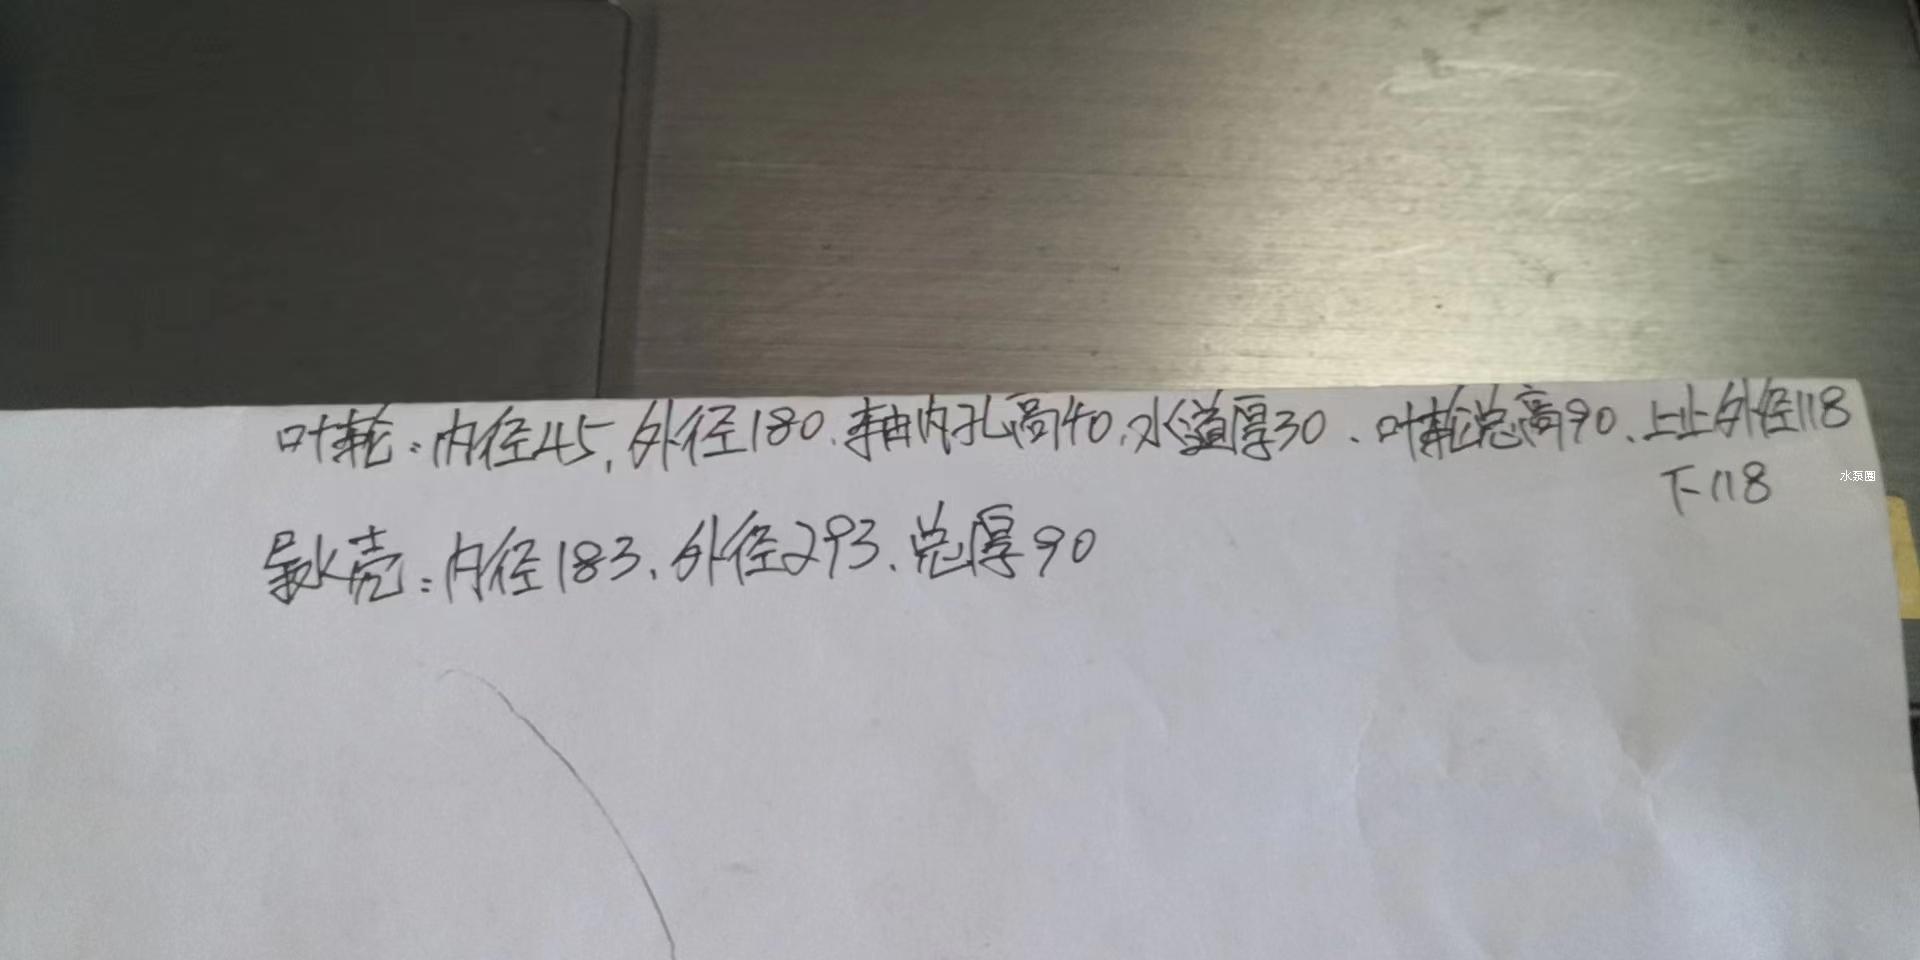 叶轮：内径45，外径180、轴内孔高40、水道厚30、叶轮总高90、上止外径118
下118
水泵圈
导水壳：内径183、外径293、总厚90